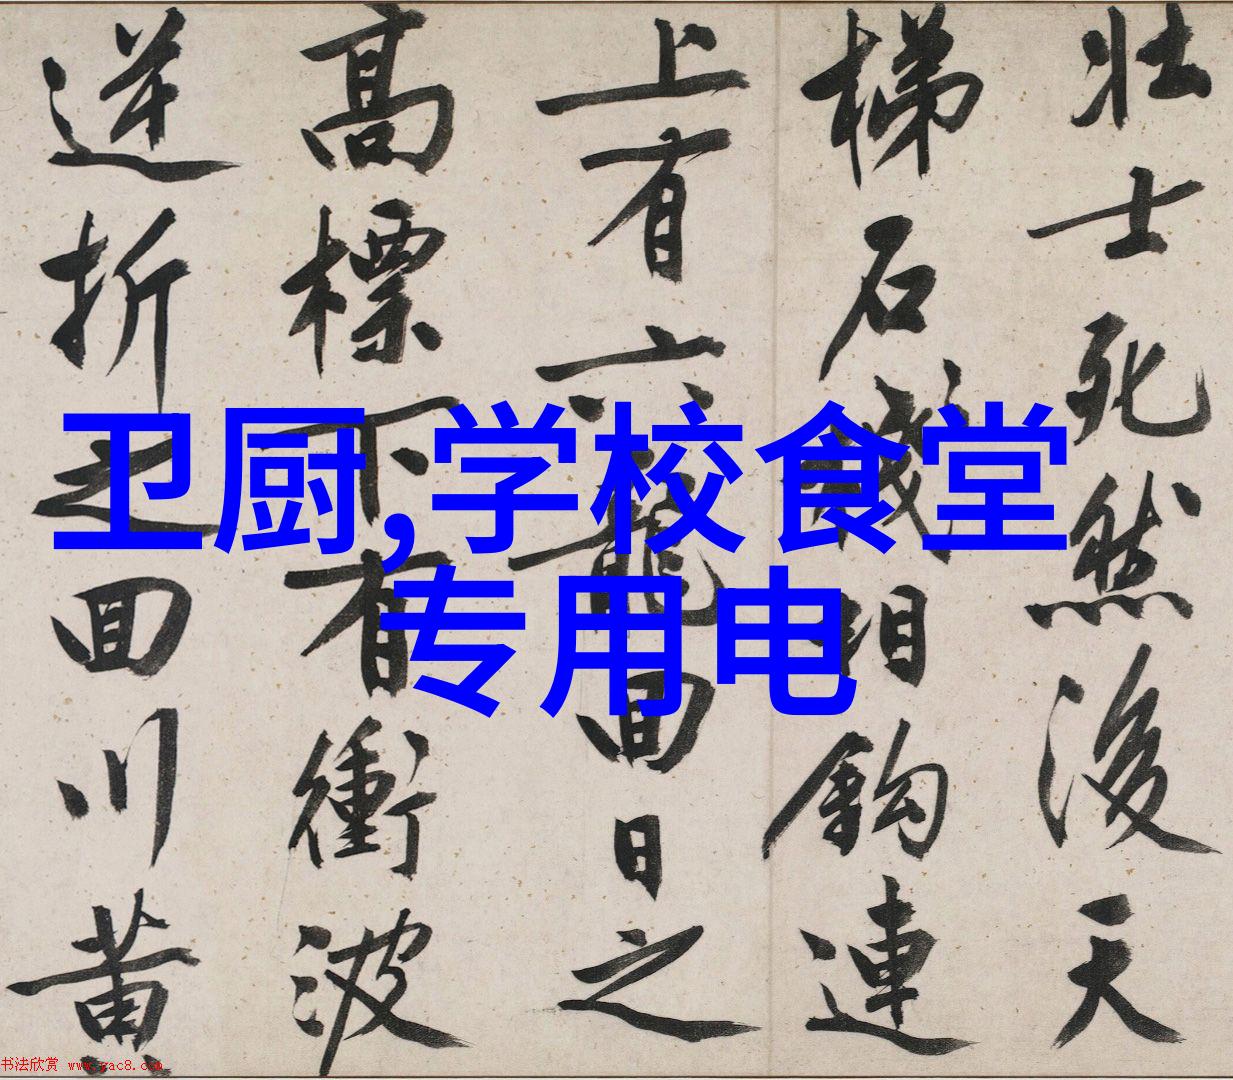 壯士死然後天
梯石棧相鈎連
上有六龍回日之
高標下有衝波
逆折之回川黄
卫厨,学校食堂
专用电
书法欣赏 www.yac8.com